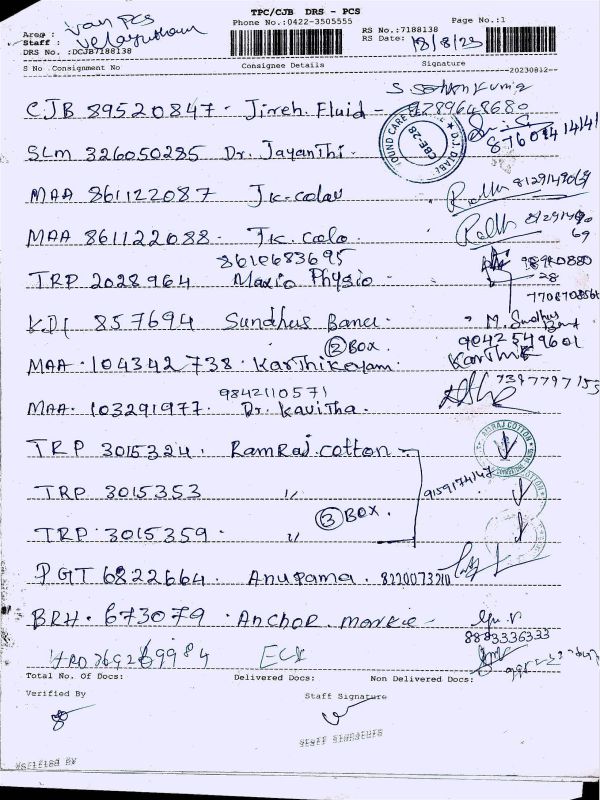 TPC/CJB DRS - PCS
Phone No.:0422-3505555
Page No.:1
Area : Van PCS
Staff : Velayutham
RS No.:7188138
RS Date: 18/8/23
DRS No. :DCJB7188138
S No Consignment No Consignee Details Signature
20230812--
CJB 89520847 - Jireh. Fluid - 8289648680
8760414141
SLM 326050285 Dr. Jayanthi.
MAA 861122087 Jk. colou
MAA 861122088 - Jk. colo
8610683695
TRP 2028964 Maxio Physio -
KDI 857694 Sundhus Banu.
9042549601
② Box
MAA - 104342738 - Karthikeyam. Karthik
7397797153
9842110571
MAA - 103291977 - Dr. Kavitha.
TRP 3015324 - RamRaj.cotton
TRP 3015353 "
9159174147
③ Box.
TRP 3015359 - "
PGT 6822664. Anupama. 8220073210
BRH - 673079 - Anchor. marke -
8883336333
Total No. Of Docs: Delivered Docs: Non Delivered Docs:
Verified By Staff Signature